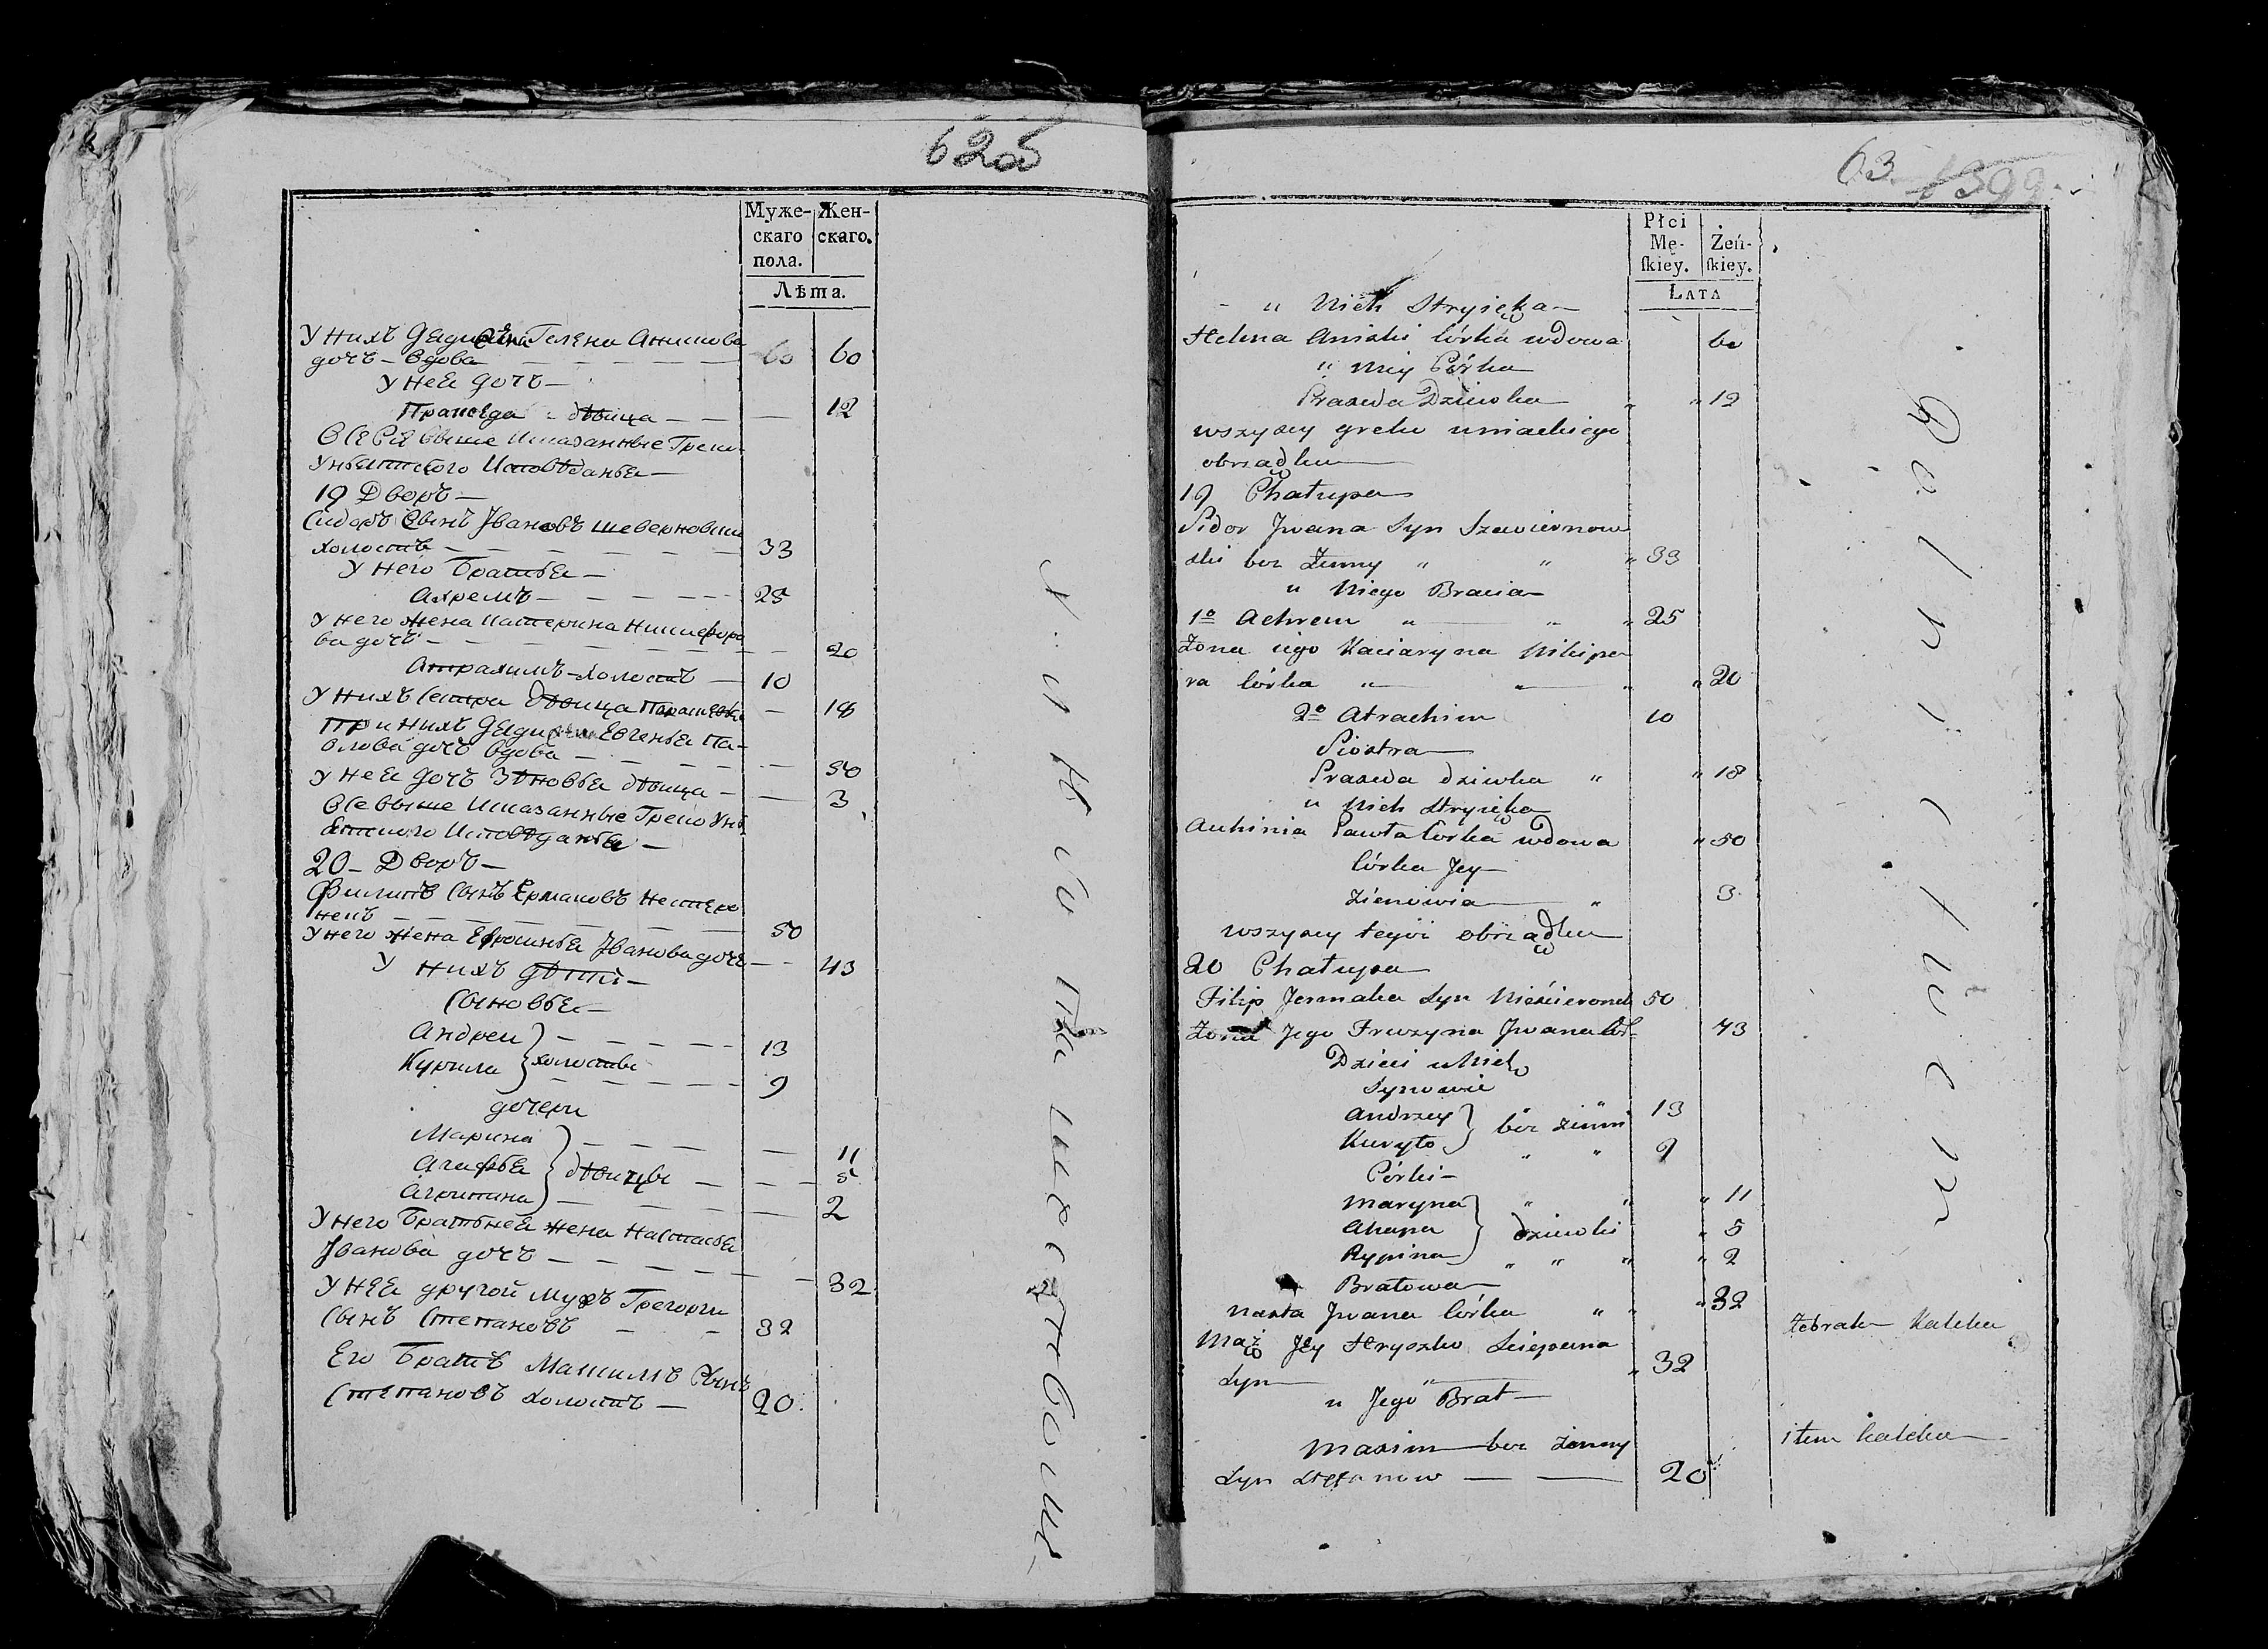 62об
Муже- Жен-
скаго скаго.
пола.
Лѣта.
У нихъ Дядина Гелена Анискова
дочь – вдова 60 60
У нее дочь –
Пракседа – дѣвица – 12
Все выше Показанные Греко
Унѣятского Исповѣданья –
19 Дворъ –
Сидоръ Сынъ Јвановъ Шеверновски
холостъ 33
У него Братья –
Ахремъ 25
У него жена Катерина Никифоро
ва дочь 20
Атрахимъ – холостъ – 10
У нихъ Сестра дѣвица Парасевья – 18
При нихъ Дядина Евгенья Па-
влова дочь вдова – 50
У нее дочь Зѣновья дѣвица – 3
Все выше Показанные Греко Унѣ
ятского Исповѣданья –
20 – Дворъ –
Филипъ Сынъ Ермаковъ Нестеро
некъ 50
У него жена Ефросинья Јванова дочь 43
У нихъ дѣти –
Сыновья –
Андрей 13
Курила холосты 9
дочери
Марина 11
Агафья дѣвицы 5
Агрипина 2
У него Братьнея жена Настасья
Јванова дочь – 32
У нее другой Мужъ Грегорги
Сынъ Степановъ – 32
Его Братъ Максимъ Сынъ
Степановъ холостъ – 20
63. 1399.
Płci
Mę- Żeń-
ſkiey. ſkiey.
LATA
u Nich Stryięka
Helena Aniski Córka wdowa 60
u Niey Córka
Praxeda Dziewka 12
wszyscy greko uniackiego
obrządku
19 Chałupa
Sidor Jwana Syn Szewiernow
ski bez Żenny 33
u Niego Bracia
1o Achrem 25
Żona iego Kaciaryna Nikipo
ra Córka 20
2o Atrachim 10
Siostra
Praxeda dziewka 18
u Nich Stryięka
Auhinia Pawła Córka wdowa 50
Córka Jey
Zienowia 3
wszyscy tegoż obrządku
20 Chałupa
Filip Jermaka Syn Nieścieronek 50
Żona Jego Fruzyna Jwana Cór- 43
Dzieci u Nich
Synowie
Andrzey 13
Kuryło bez żenni 9
Córki –
Maryna 11
Ahapa dziewki 5
Rypina 2
Bratowa
Nasta Jwana Córka 32
Mąż Jey Hryszko Sciepana
Syn 32
u Jego Brat –
Maxim bez żenny
Syn Stefanow 20
Żebrak Kaleka
item kaleka